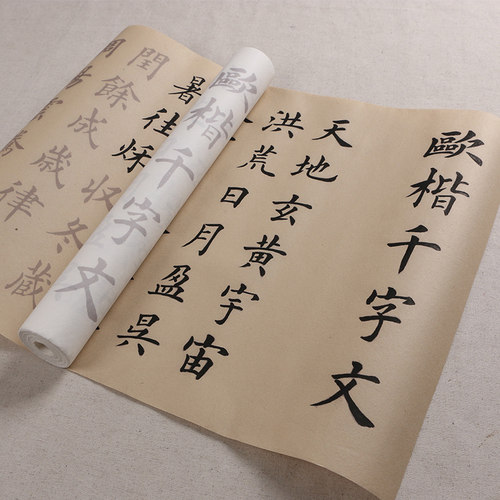 歐楷千字文
天地玄黃宇宙
洪荒日月盈昃
歐楷千字文
暑往秋
收冬藏
閏餘成歲律